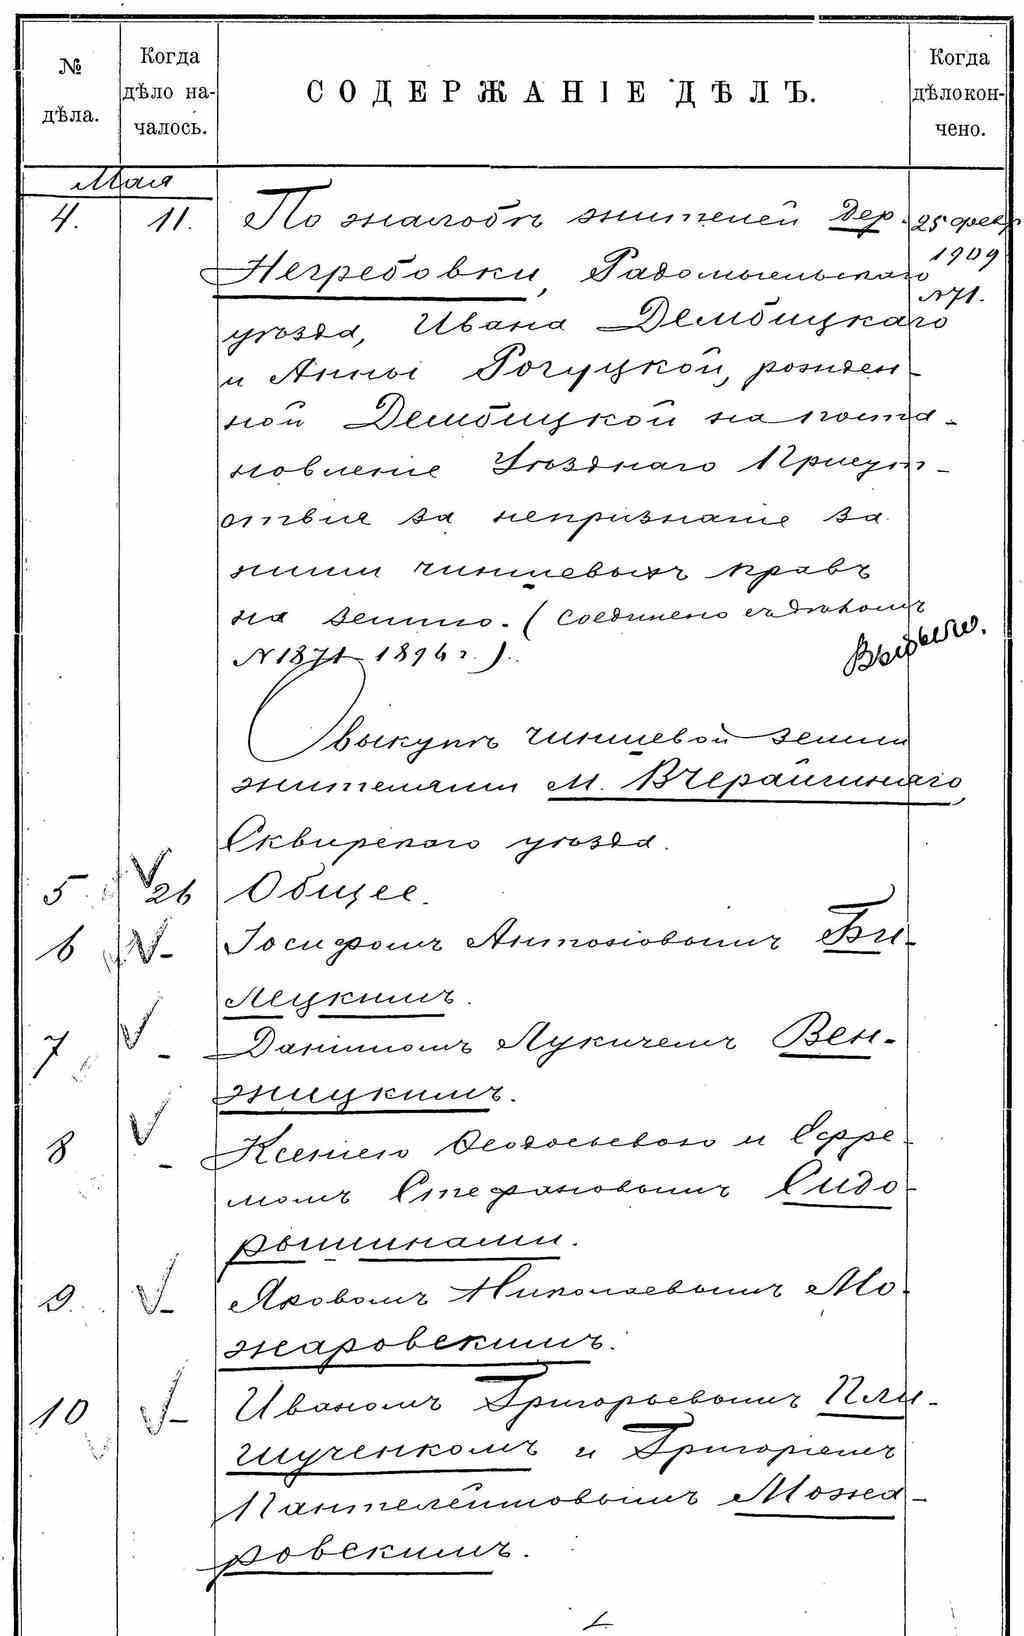 № дѣла.
Когда дѣло на-чалось.
СОДЕРЖАНІЕ ДѢЛЪ.
Когда дѣло кон-чено.
Мая
4. 11. По жалобѣ жителей дер. 25 февр.
Негребовки, Радомысльскаго 1909
№71.
уѣзда, Ивана Дембицкаго
и Анны Рогуцкой, рожден-
ной Дембицкой на поста-
новленіе Уѣзднаго Присут-
ствія за непризнаніе за
ними чиншевыхъ правъ
на землю. (Соединено съ дѣломъ
N 1871 - 1896 г.).
О выкупѣ чиншевой земли
жителями м. Вчерайшняго,
Сквирскаго уѣзда.
5 26 Общее.
6 - Іосифомъ Антоніовымъ Би-
лецкимъ.
7 - Даніиломъ Лукичемъ Вен-
жицкимъ.
8 - Ксеніею Ѳеодосьевою и Ефре-
момъ Стефановымъ Сидо-
рышинами.
9. - Яковомъ Николаевымъ Мо-
жаровскимъ.
10 - Иваномъ Григорьевымъ Пли-
шученкомъ и Григоріемъ
Пантелеймовымъ Можа-
ровскимъ.